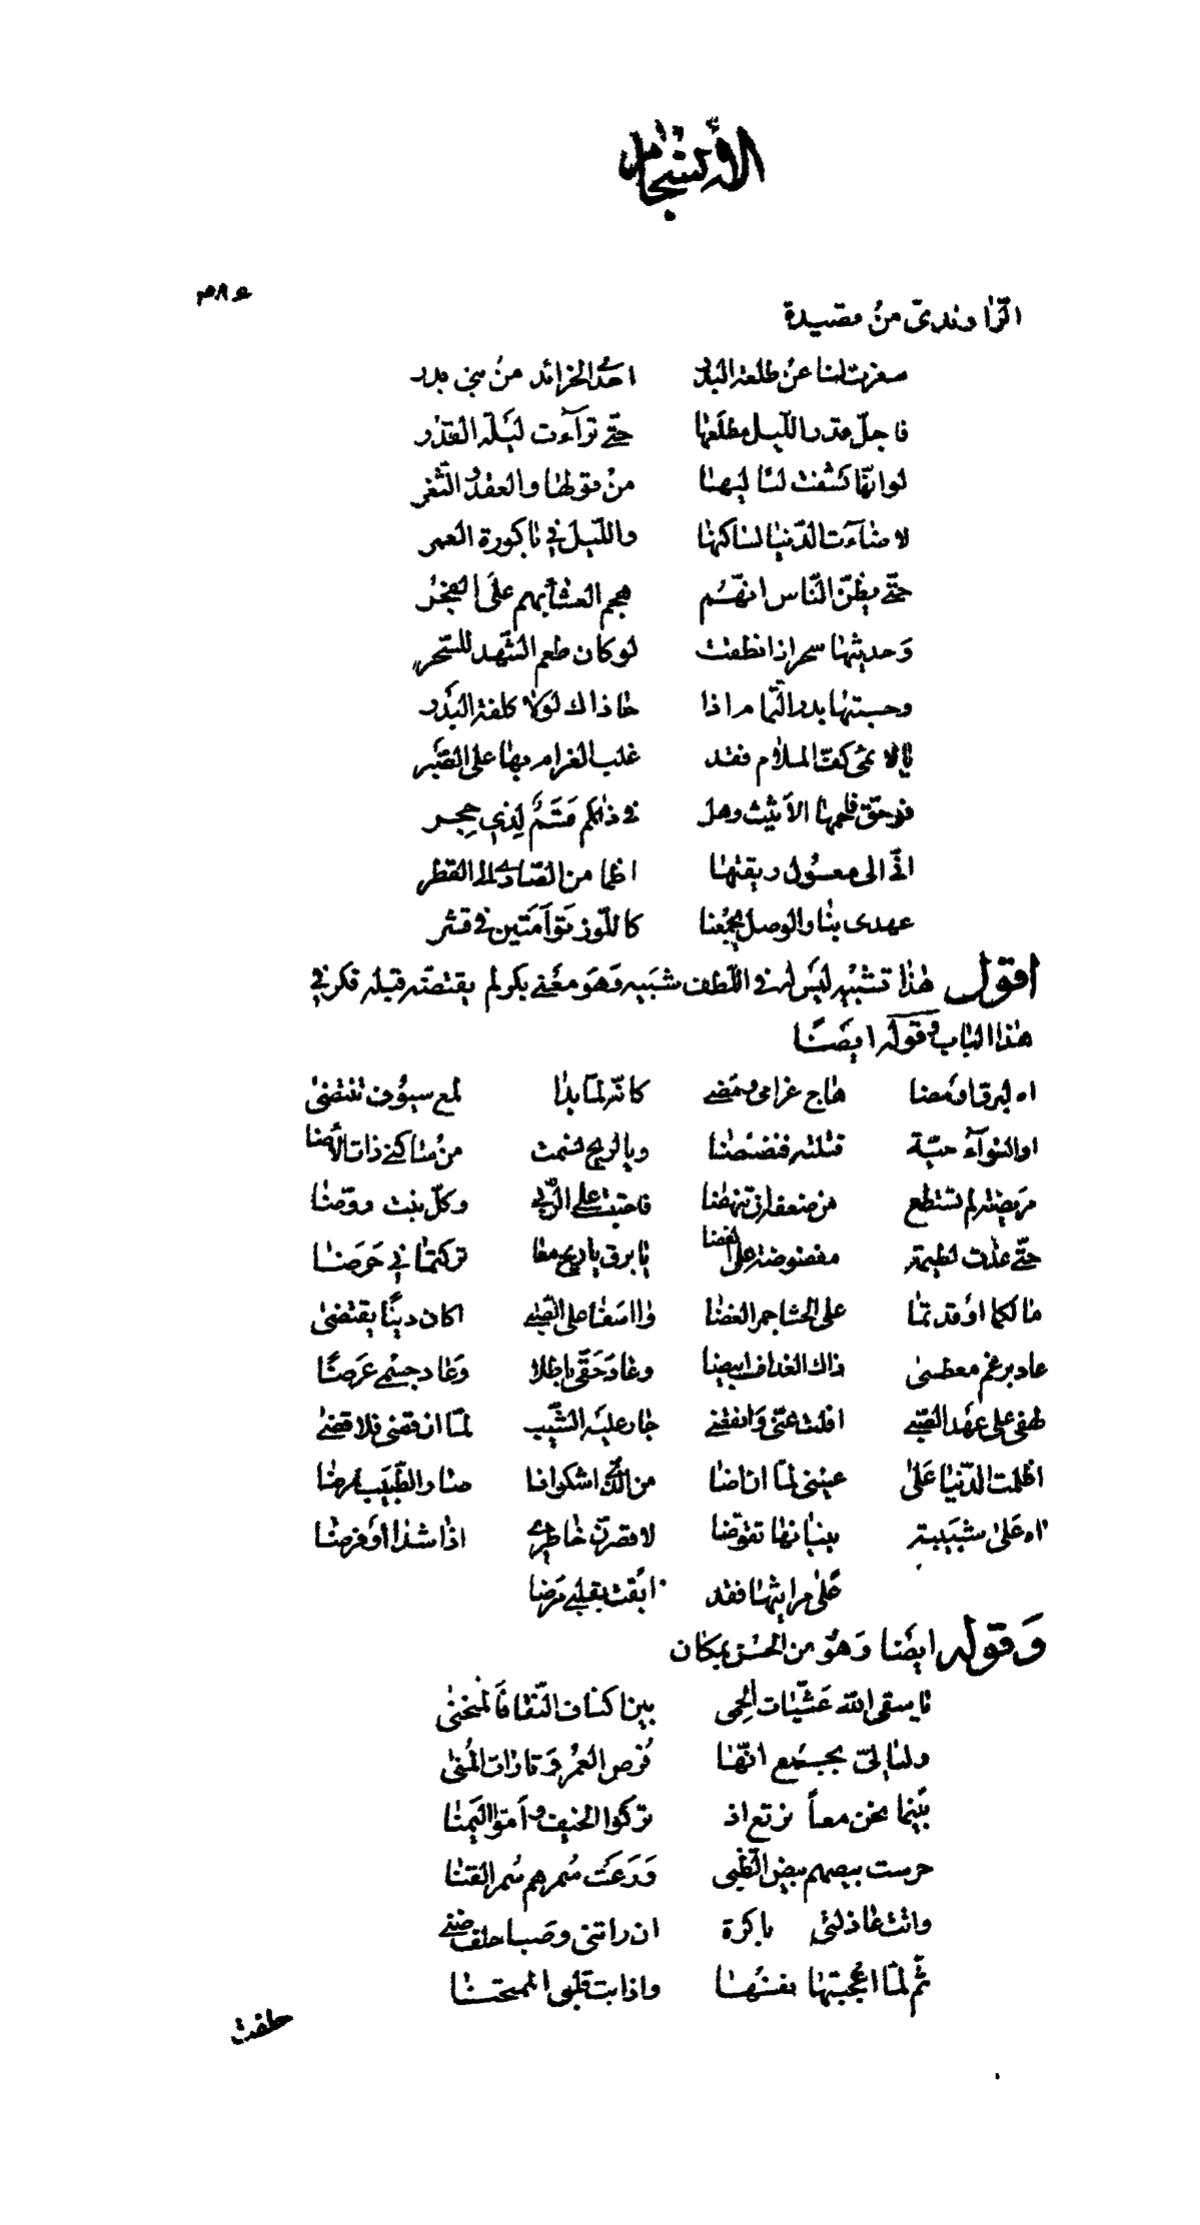 الأنسجام
٣٨٤
الراوندى من قصيدة
سفرت لنا عن طلعة البدر احدى الخرائد من بني بدر
فاجل قدر الليل مطلعها حتى تراءت ليلة القدر
لو انها كشفت لنا لبها من قولها والعقد والثغر
لاضاءت الدنيا لساكنها والليل في باكورة العمر
حتى يظن الناس انهم هجم العشا بهم على الفجر
وحديثها سحر اذا نطقت لو كان طعم الشهد للسحر
وحسبتها بدر التمام اذا حاذاك لولا كلفة البدر
يا لائمى كف الملام فقد غلب الغرام بها على الصبر
فوحق فاحمها الاثيث وهل في ذلكم قسم لذي حجر
اني الى معسول ريقتها اظما من الصادي الى القطر
عهدى بنا والوصل يجمعنا كاللوز توآمتين في قشر
اقول هذا تشبيه ليس له في اللطف شبيه وهو معنى بكر لم يقتضه قبله فكر في
هذا الباب وقوله ايضا
اه لبرق اومضا هاج غرامى ومضى كانه لما بدا لمع سيوف تنتضى
او التواء حية قتلته فنضنضا وبالريح نسمت من ساكني ذات الاضا
مريضة لم تستطع من ضعفها ان تنهضا فاحيت على الربى وكل نبت روضا
حتى غدت لطيمة مفضوضة على الفضا يا برق يا ريح معا تركتما في حرضا
ما لكما اوقدتما على الحشا جمر الغضا وا اسفا على الصبى اكان دينا يقتضى
عاد برغم معطسى ذاك الغداف ابيضا وعاد حقى باطلا وعاد جسمي عرضا
لهفى على عهد الصبى افلت عنى وانقضى جار عليه الشيب لما ان قضى فلا قضى
اظلمت الدنيا على عينى لما ان اضا من ذا الذي اشكو اذا صار الطبيب ممرضا
اه على شبيبة بنيانها تقوضا لاقصرن خاطري اذا شدا او قرضا
على مراثيها فقد ابقت بقلبي مرضا
وقوله ايضا وهو من الحسن بمكان
يا سقى الله عشيات الحمى بين اكناف النقا فالمنحنى
وليالى بجمع انها فرص العمر وتارات المنى
بينما نحن معا نرتع اذ تركوا الخيف وأموا اليمنا
حرست بيضهم بيض الظبى ورعت سمرهم سمر القنا
واتت عاذلتى باكرة ان راتنى وصبا حلف ضنى
ثم لما اعجبتها بفنها واذابت قلبى الممتحنا
حلفت